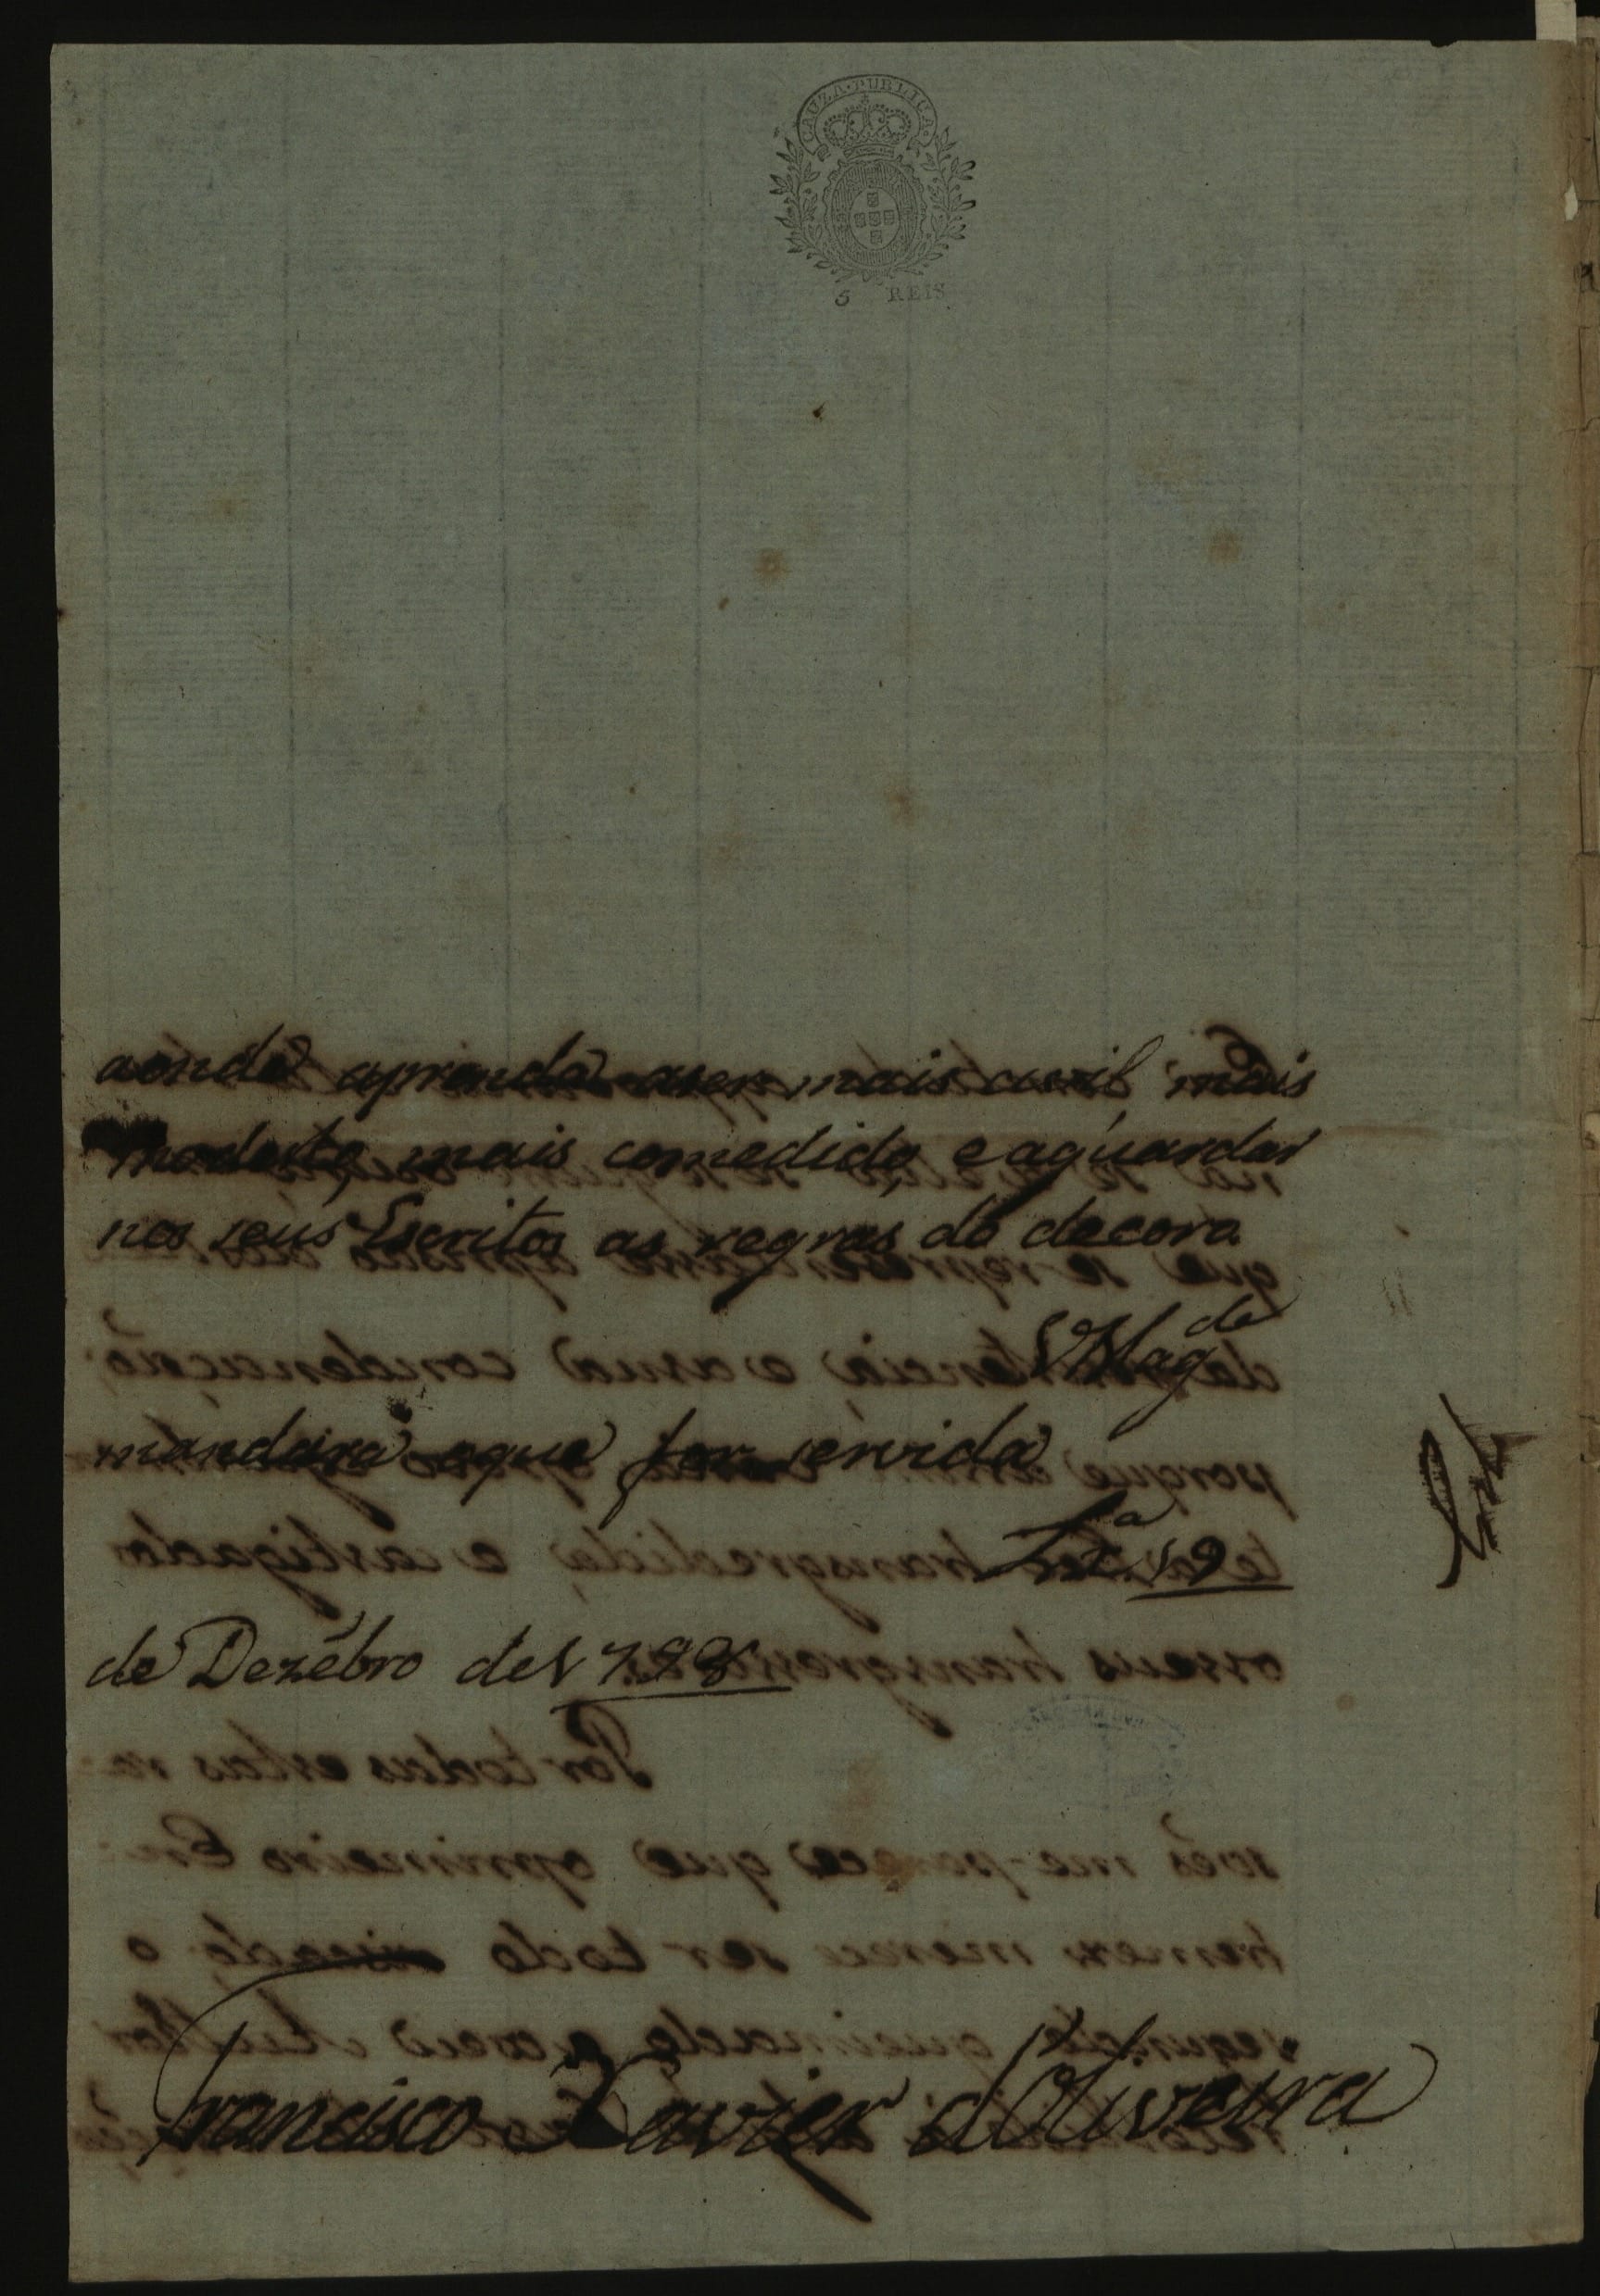 CAUZA PUBLICA
5 REIS
aonde aprenda aser mais civil mais
modesto, mais comedido, e aguardar
nos seus Escritos as regras do decoro.
VMag.de
mandará oque for servida
Lx.a 19
de Dezẽbro de 1798
Francisco Xavier d'Oliveira